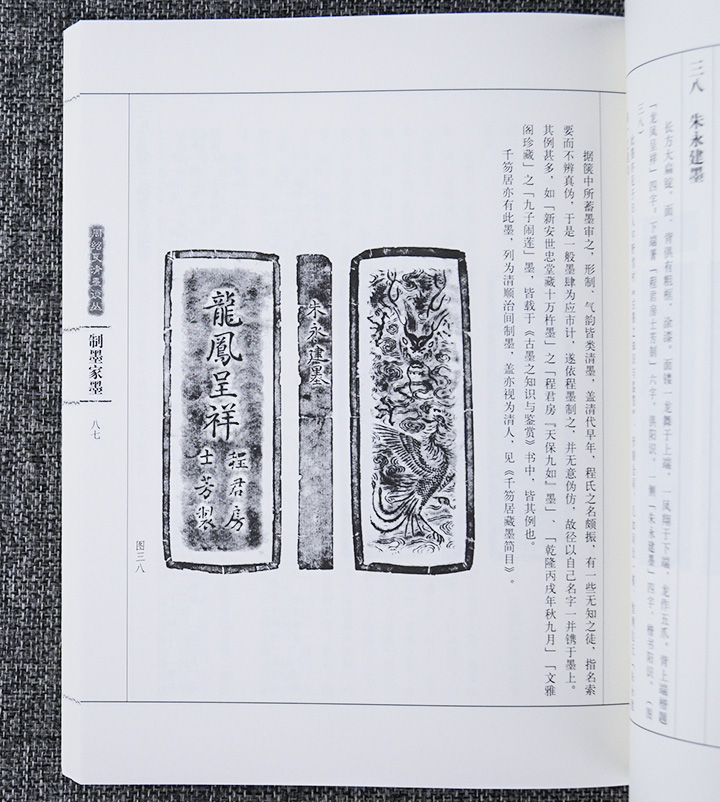 三八　朱永建墨
长方大扁锭，面、背俱有粗框，涂漆。面镂一龙舞于上端，一凤翔于下端，龙作五爪。背上端楷题
「龙凤呈祥」四字，下端署「程君房士芳制」六字，俱阳识。一侧「朱永建墨」四字，楷书阳识。（图
三八）
据箧中所蓄墨审之，形制、气韵皆类清墨，盖清代早年，程氏之名颇振，有一些无知之徒，指名索
要而不辨真伪，于是一般墨肆为应市计，遂依程墨制之，并无意伪仿，故径以自己名字一并镌于墨上。
其例甚多，如「新安世忠堂藏十万杵墨」之「程君房『天保九如』墨」、「乾隆丙戌年秋九月」「文雅
阁珍藏」之「九子闹莲」墨，皆载于《古墨之知识与鉴赏》书中，皆其例也。
千笏居亦有此墨，列为清顺治间制墨，盖亦视为清人，见《千笏居藏墨简目》。
朱永建墨
龍鳳呈祥
程君房
士芳製
图三八
制墨家墨
八七